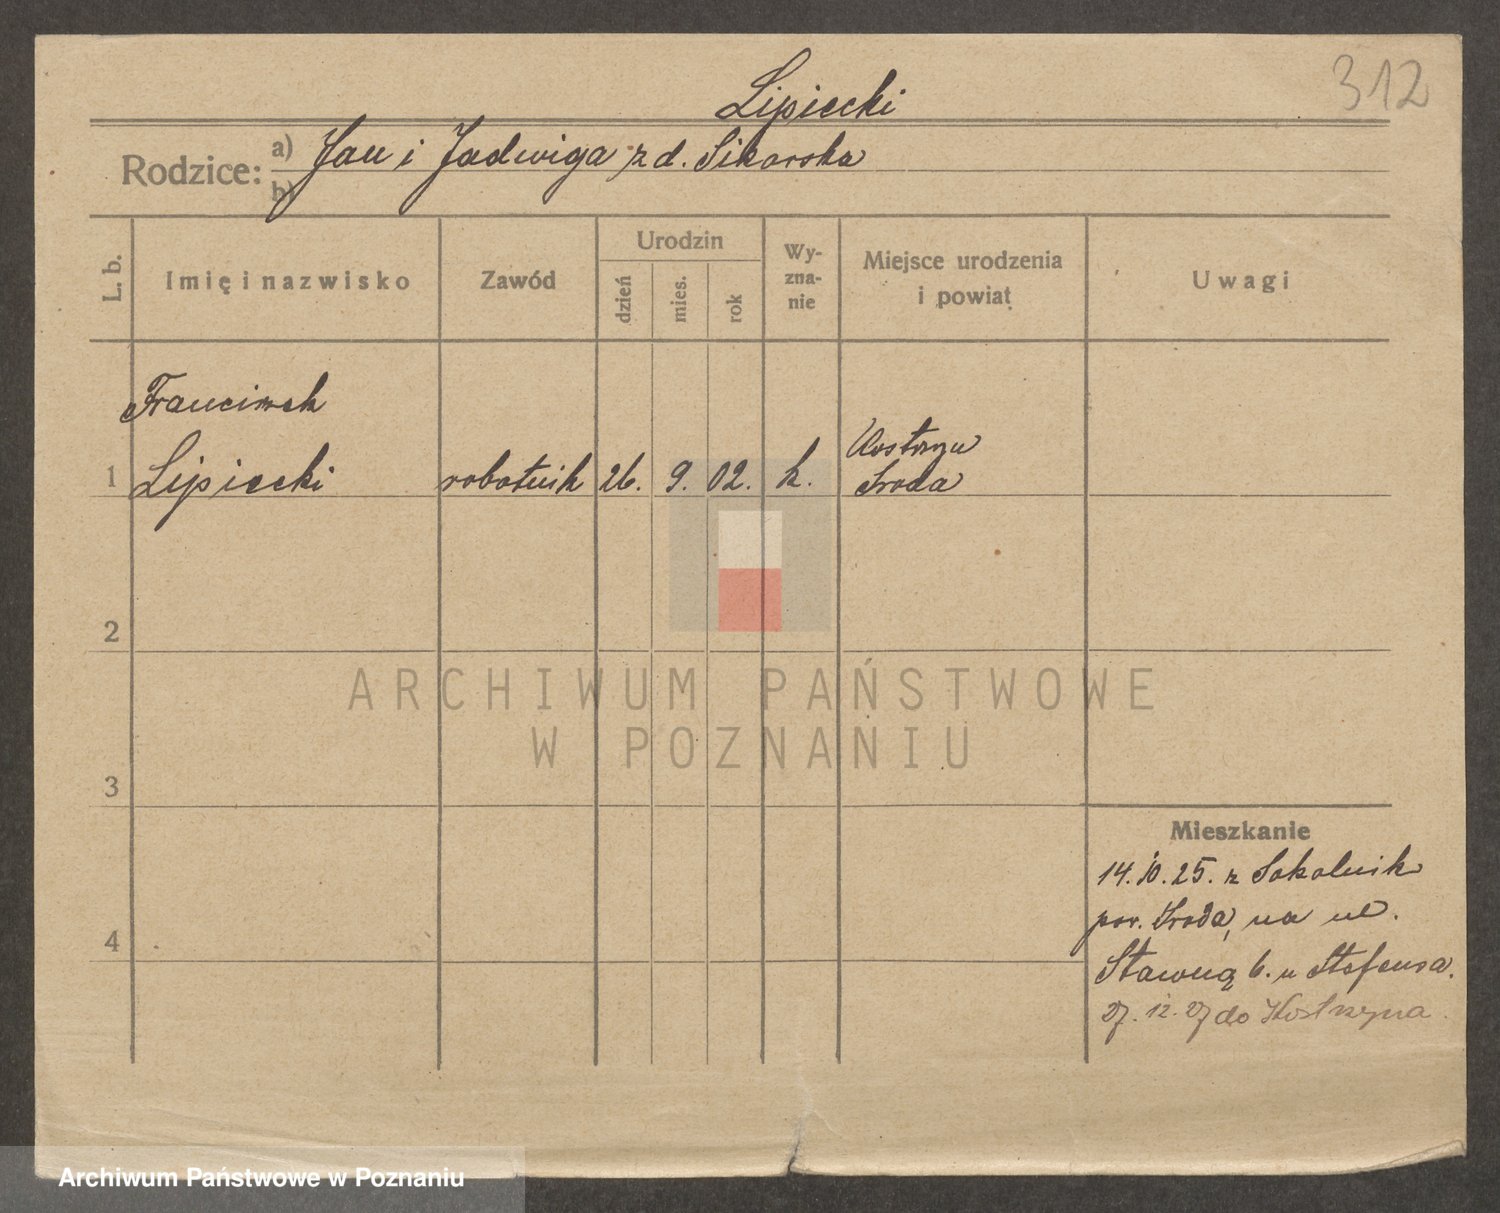 312
Lipiecki
Rodzice: a) Jan i Jadwiga z d. Sikorska
b)
L. b.
Imię i nazwisko
Zawód
Urodzin
dzień
mies.
rok
Wy-
zna-
nie
Miejsce urodzenia
i powiat
Uwagi
Franciszek
1 Lipiecki robotnik 26. 9. 02. k. Kostrzyn
Środa
2
3
4
Mieszkanie
14.10.25. z Sokolnik
pow. Środa, na ul.
Stawną 6. u Stefensa.
27.12.27 do Kostrzyna.
ARCHIWUM PAŃSTWOWE
W POZNANIU
Archiwum Państwowe w Poznaniu